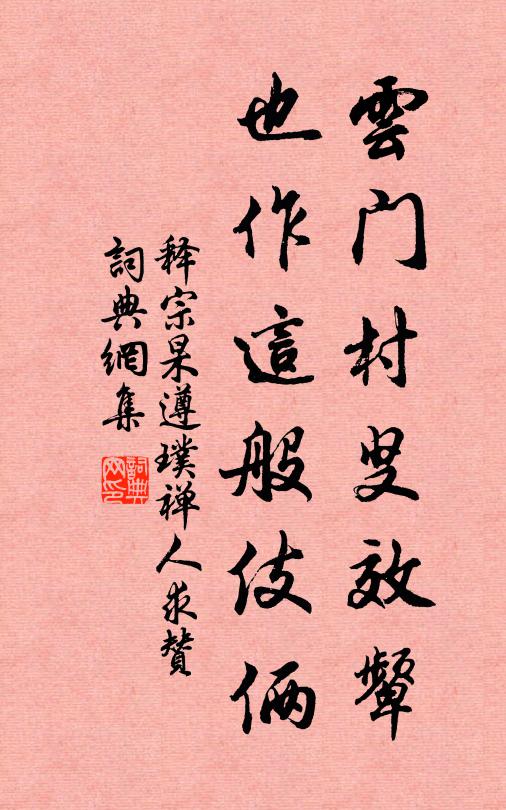 雲门村叟效顰
也作這般伎俩
释宗杲遵璞禅人求贊
詞典網集
詞典網印